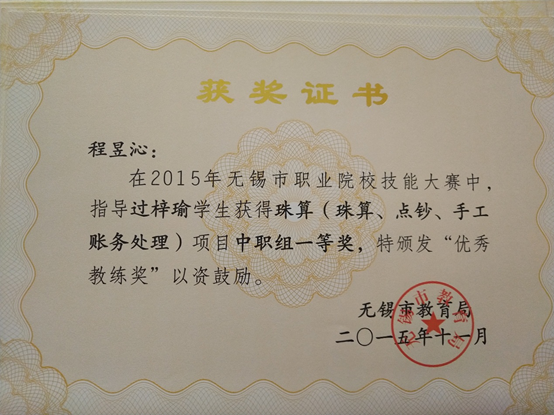 获奖证书
程昱沁：
在2015年无锡市职业院校技能大赛中，
指导过梓瑜学生获得珠算（珠算、点钞、手工
账务处理）项目中职组一等奖，特颁发“优秀
教练奖”以资鼓励。
无锡市教育局
二〇一五年十一月
无锡市教育局